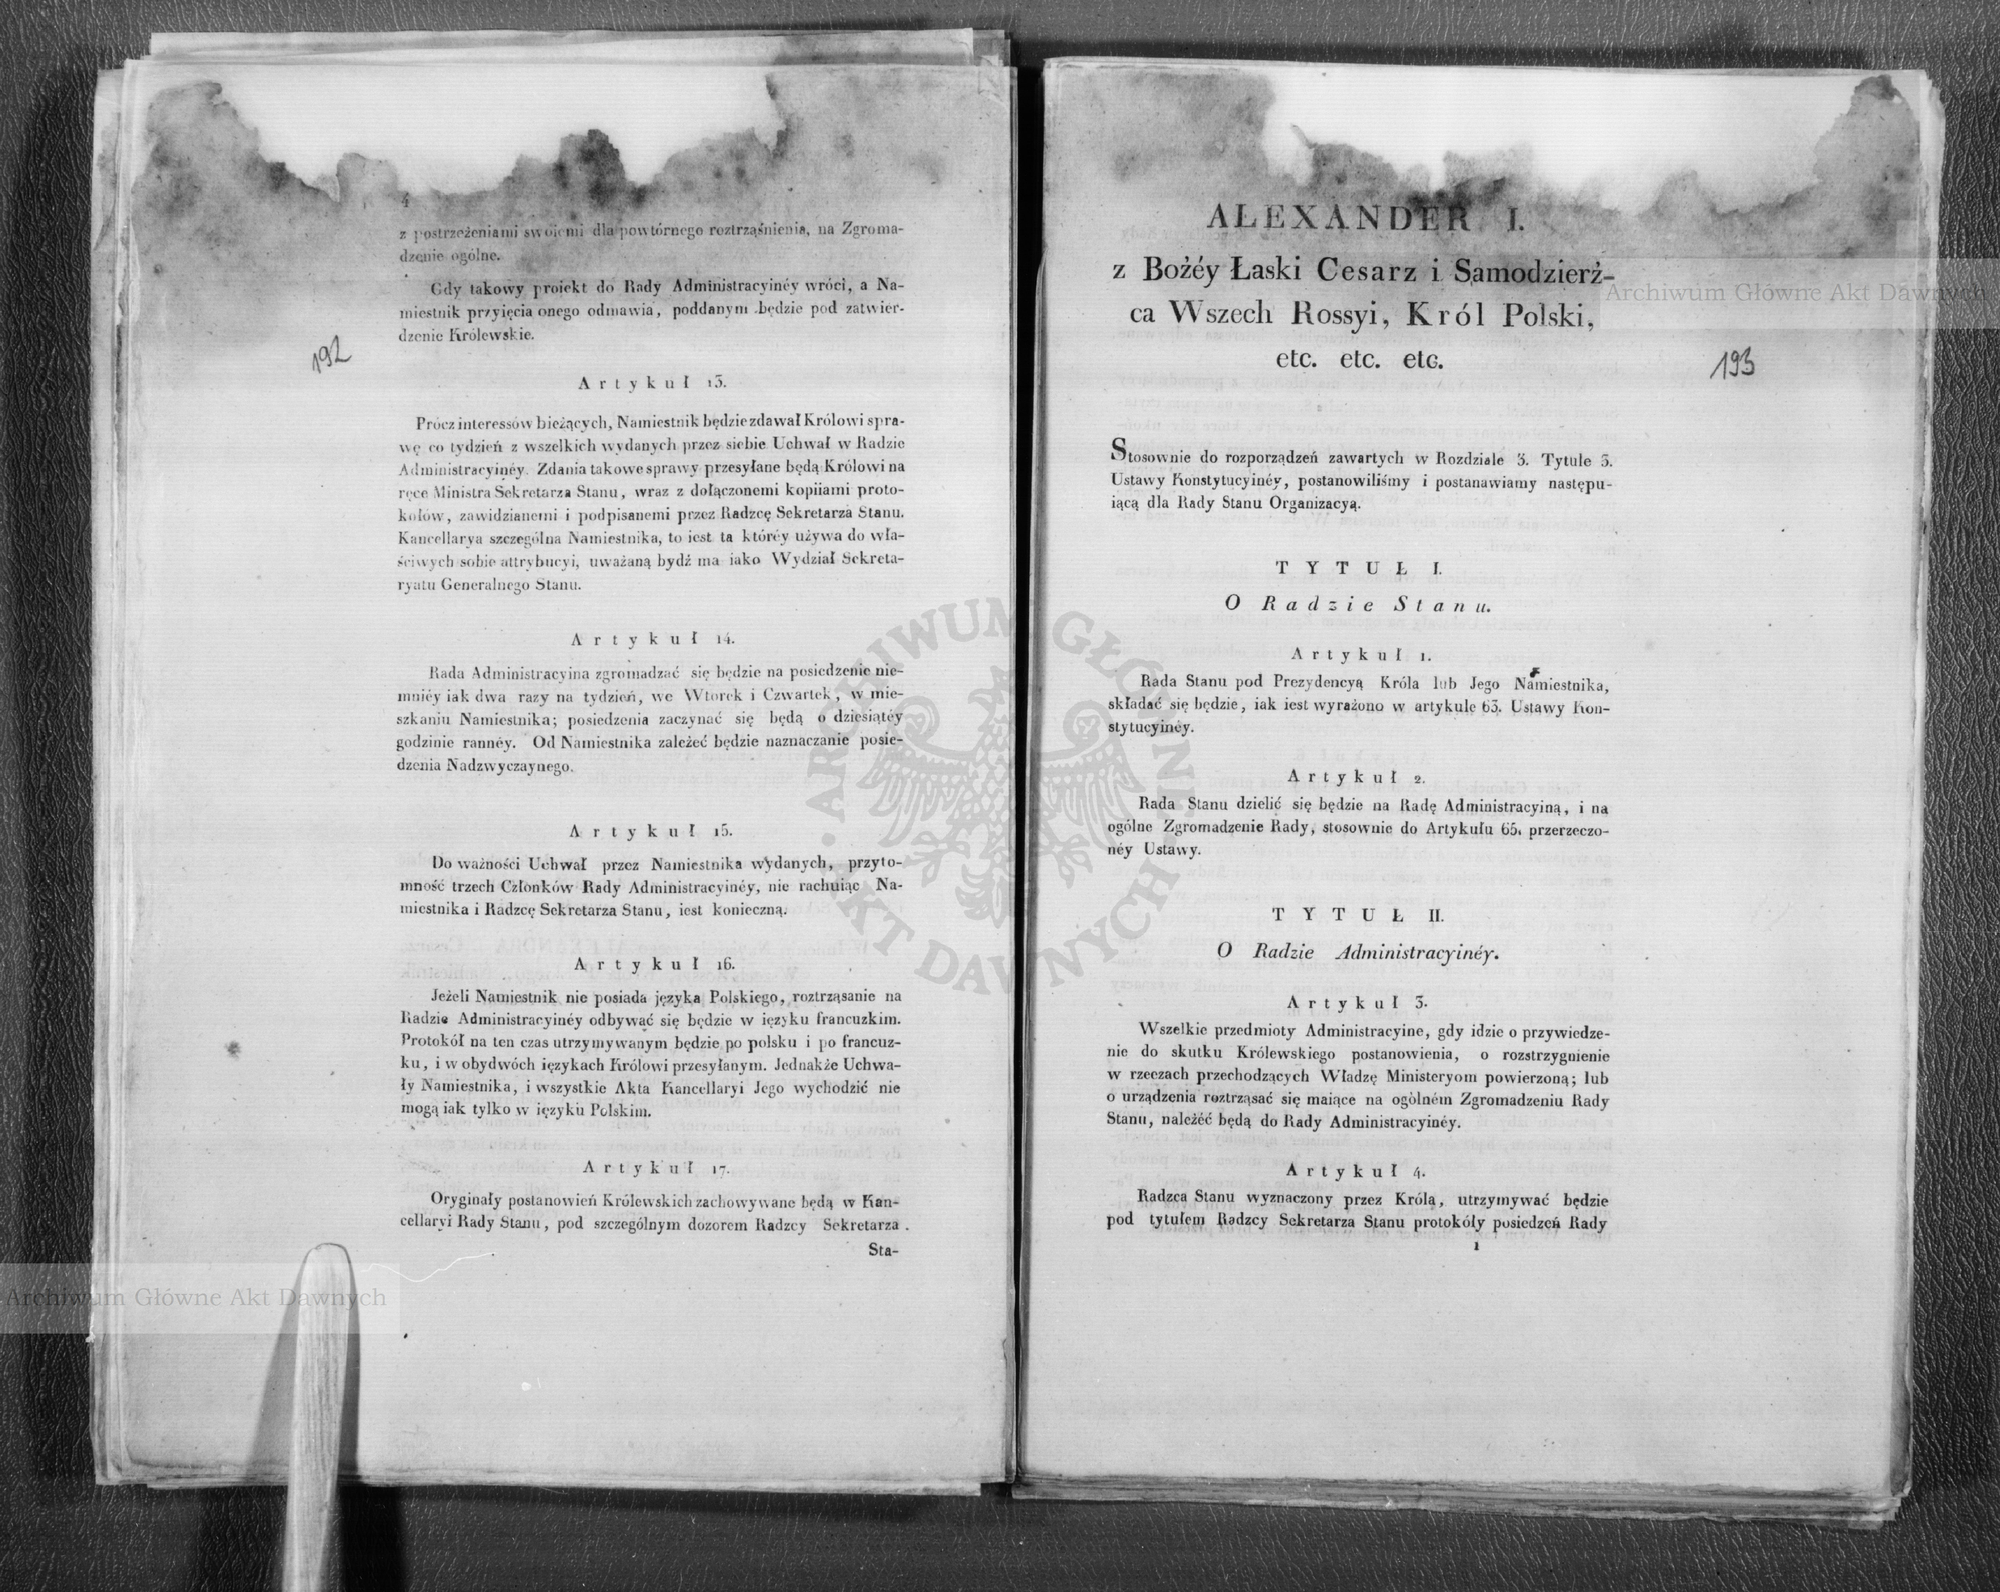 4
z postrzeżeniami swoiemi dla powtórnego roztrząśnienia, na Zgroma-
dzenie ogólne.
Gdy takowy proiekt do Rady Administracyinéy wróci, a Na-
miestnik przyięcia onego odmawia, poddanym będzie pod zatwier-
dzenie Królewskie.
192
Artykuł 13.
Prócz interessów bieżących, Namiestnik będzie zdawał Królowi spra-
wę co tydzień z wszelkich wydanych przez siebie Uchwał w Radzie
Administracyinéy. Zdania takowe sprawy przesyłane będą Królowi na
ręce Ministra Sekretarza Stanu, wraz z dołączonemi kopiiami proto-
kołów, zawidzianemi i podpisanemi przez Radzcę Sekretarza Stanu.
Kancellarya szczególna Namiestnika, to iest ta któréy używa do wła-
ściwych sobie attrybucyi, uważaną bydź ma iako Wydział Sekreta-
ryatu Generalnego Stanu.
Artykuł 14.
Rada Administracyina zgromadzać się będzie na posiedzenie nie-
mniéy iak dwa razy na tydzień, we Wtorek i Czwartek, w mie-
szkaniu Namiestnika; posiedzenia zaczynać się będą o dziesiątéy
godzinie rannéy. Od Namiestnika zależeć będzie naznaczanie posie-
dzenia Nadzwyczaynego.
Artykuł 15.
Do ważności Uchwał przez Namiestnika wydanych, przyto-
mność trzech Członków Rady Administracyinéy, nie rachuiąc Na-
miestnika i Radzcę Sekretarza Stanu, iest konieczną.
Artykuł 16.
Jeżeli Namiestnik nie posiada języka Polskiego, roztrząsanie na
Radzie Administracyinéy odbywać się będzie w ięzyku francuzkim.
Protokół na ten czas utrzymywanym będzie po polsku i po francuz-
ku, i w obydwóch ięzykach Królowi przesyłanym. Jednakże Uchwa-
ły Namiestnika, i wszystkie Akta Kancellaryi Jego wychodzić nie
mogą iak tylko w ięzyku Polskim.
Artykuł 17.
Oryginały postanowień Królewskich zachowywane będą w Kan-
cellaryi Rady Stanu, pod szczególnym dozorem Radzcy Sekretarza
Sta-
Archiwum Główne Akt Dawnych
ALEXANDER I.
z Bożéy Łaski Cesarz i Samodzierż-
ca Wszech Rossyi, Król Polski,
etc. etc. etc.
Archiwum Główne Akt Dawnych
193
Stosownie do rozporządzeń zawartych w Rozdziale 3. Tytule 3.
Ustawy Konstytucyinéy, postanowiliśmy i postanawiamy następu-
iącą dla Rady Stanu Organizacyą.
TYTUŁ I.
O Radzie Stanu.
Artykuł 1.
Rada Stanu pod Prezydencyą Króla lub Jego Namiestnika,
składać się będzie, iak iest wyrażono w artykule 63. Ustawy Kon-
stytucyinéy.
Artykuł 2.
Rada Stanu dzielić się będzie na Radę Administracyiną, i na
ogólne Zgromadzenie Rady, stosownie do Artykułu 65. przerzeczo-
néy Ustawy.
TYTUŁ II.
O Radzie Administracyinéy.
Artykuł 3.
Wszelkie przedmioty Administracyine, gdy idzie o przywiedze-
nie do skutku Królewskiego postanowienia, o rozstrzygnienie
w rzeczach przechodzących Władzę Ministeryom powierzoną; lub
o urządzenia roztrząsać się maiące na ogólném Zgromadzeniu Rady
Stanu, należéć będą do Rady Administracyinéy.
Artykuł 4.
Radzca Stanu wyznaczony przez Królą, utrzymywać będzie
pod tytułem Radzcy Sekretarza Stanu protokóły posiedzeń Rady
1
ARCHIWUM GŁÓWNE AKT DAWNYCH